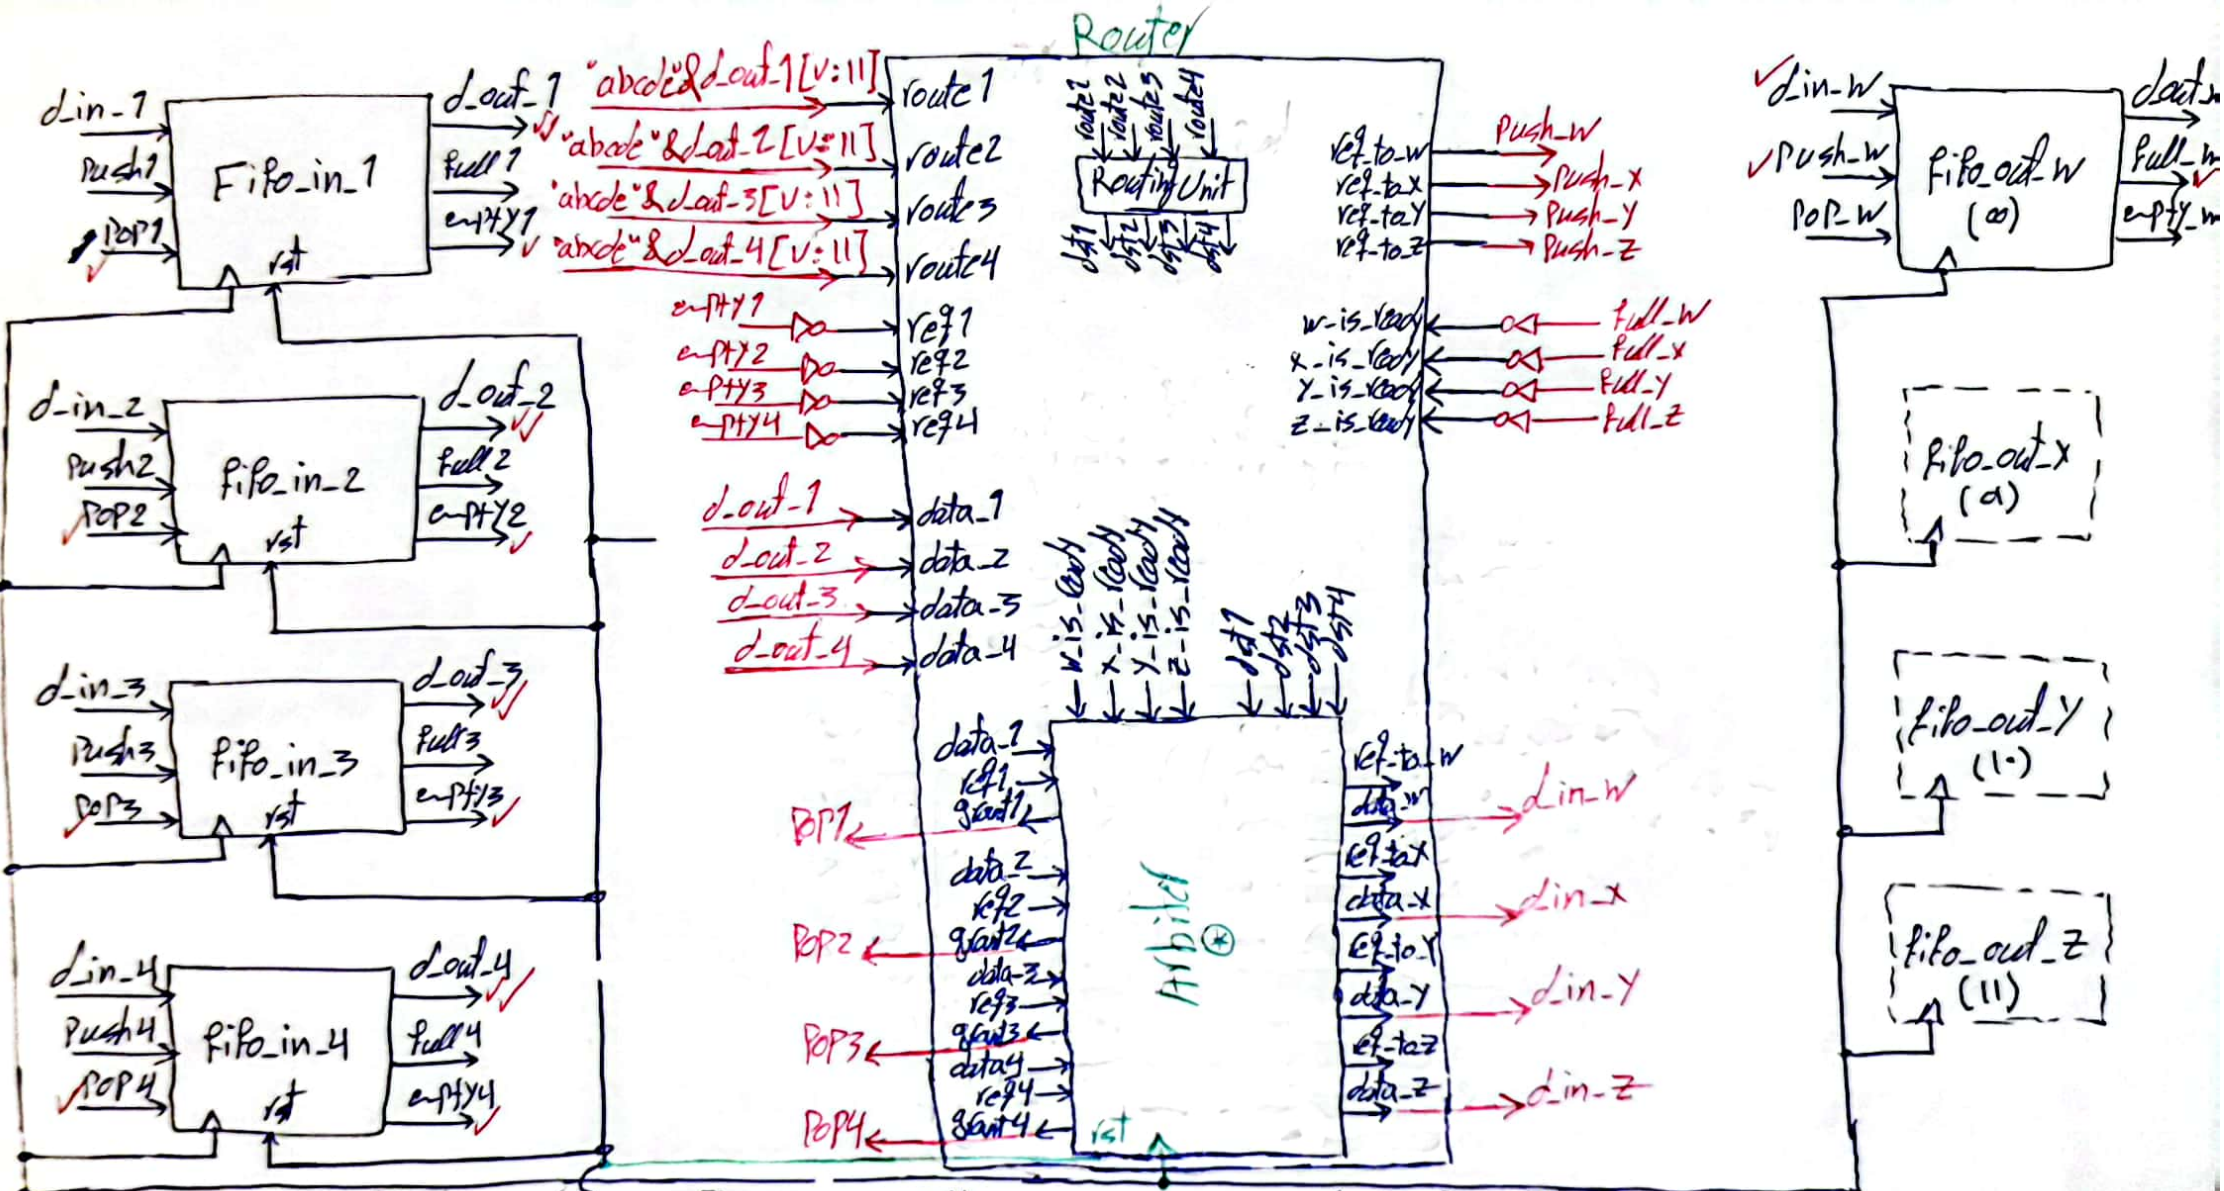 Router
d_in_1
Push1
POP1
Fifo_in_1
rst
d_out_1
full1
empty1
d_in_2
Push2
POP2
fifo_in_2
rst
d_out_2
full2
empty2
d_in_3
Push3
POP3
fifo_in_3
rst
d_out_3
full3
empty3
d_in_4
Push4
POP4
fifo_in_4
rst
d_out_4
full4
empty4
"abcde"&d_out_1[V:11]
"abcde"&d_out_2[V:11]
"abcde"&d_out_3[V:11]
"abcde"&d_out_4[V:11]
route1
route2
route3
route4
empty1
empty2
empty3
empty4
req1
req2
req3
req4
d_out_1
d_out_2
d_out_3
d_out_4
data_1
data_2
data_3
data_4
route1
route2
route3
route4
Routing Unit
dst1
dst2
dst3
dst4
req_to_w
req_to_x
req_to_y
req_to_z
Push_w
Push_x
Push_y
Push_z
w_is_ready
x_is_ready
y_is_ready
z_is_ready
full_w
full_x
full_y
full_z
w_is_ready
x_is_ready
y_is_ready
z_is_ready
dst1
dst2
dst3
dst4
data_1
req1
grant1
data_2
req2
grant2
data_3
req3
grant3
data4
req4
grant4
POP1
POP2
POP3
POP4
Arbiter
*
rst
req_to_w
data_w
req_tox
data_x
req_to_y
data_y
req_toz
data_z
d_in_w
d_in_x
d_in_y
d_in_z
d_in_w
Push_w
POP_w
fifo_out_w
(00)
full_w
empty_w
fifo_out_x
(01)
fifo_out_y
(10)
fifo_out_z
(11)